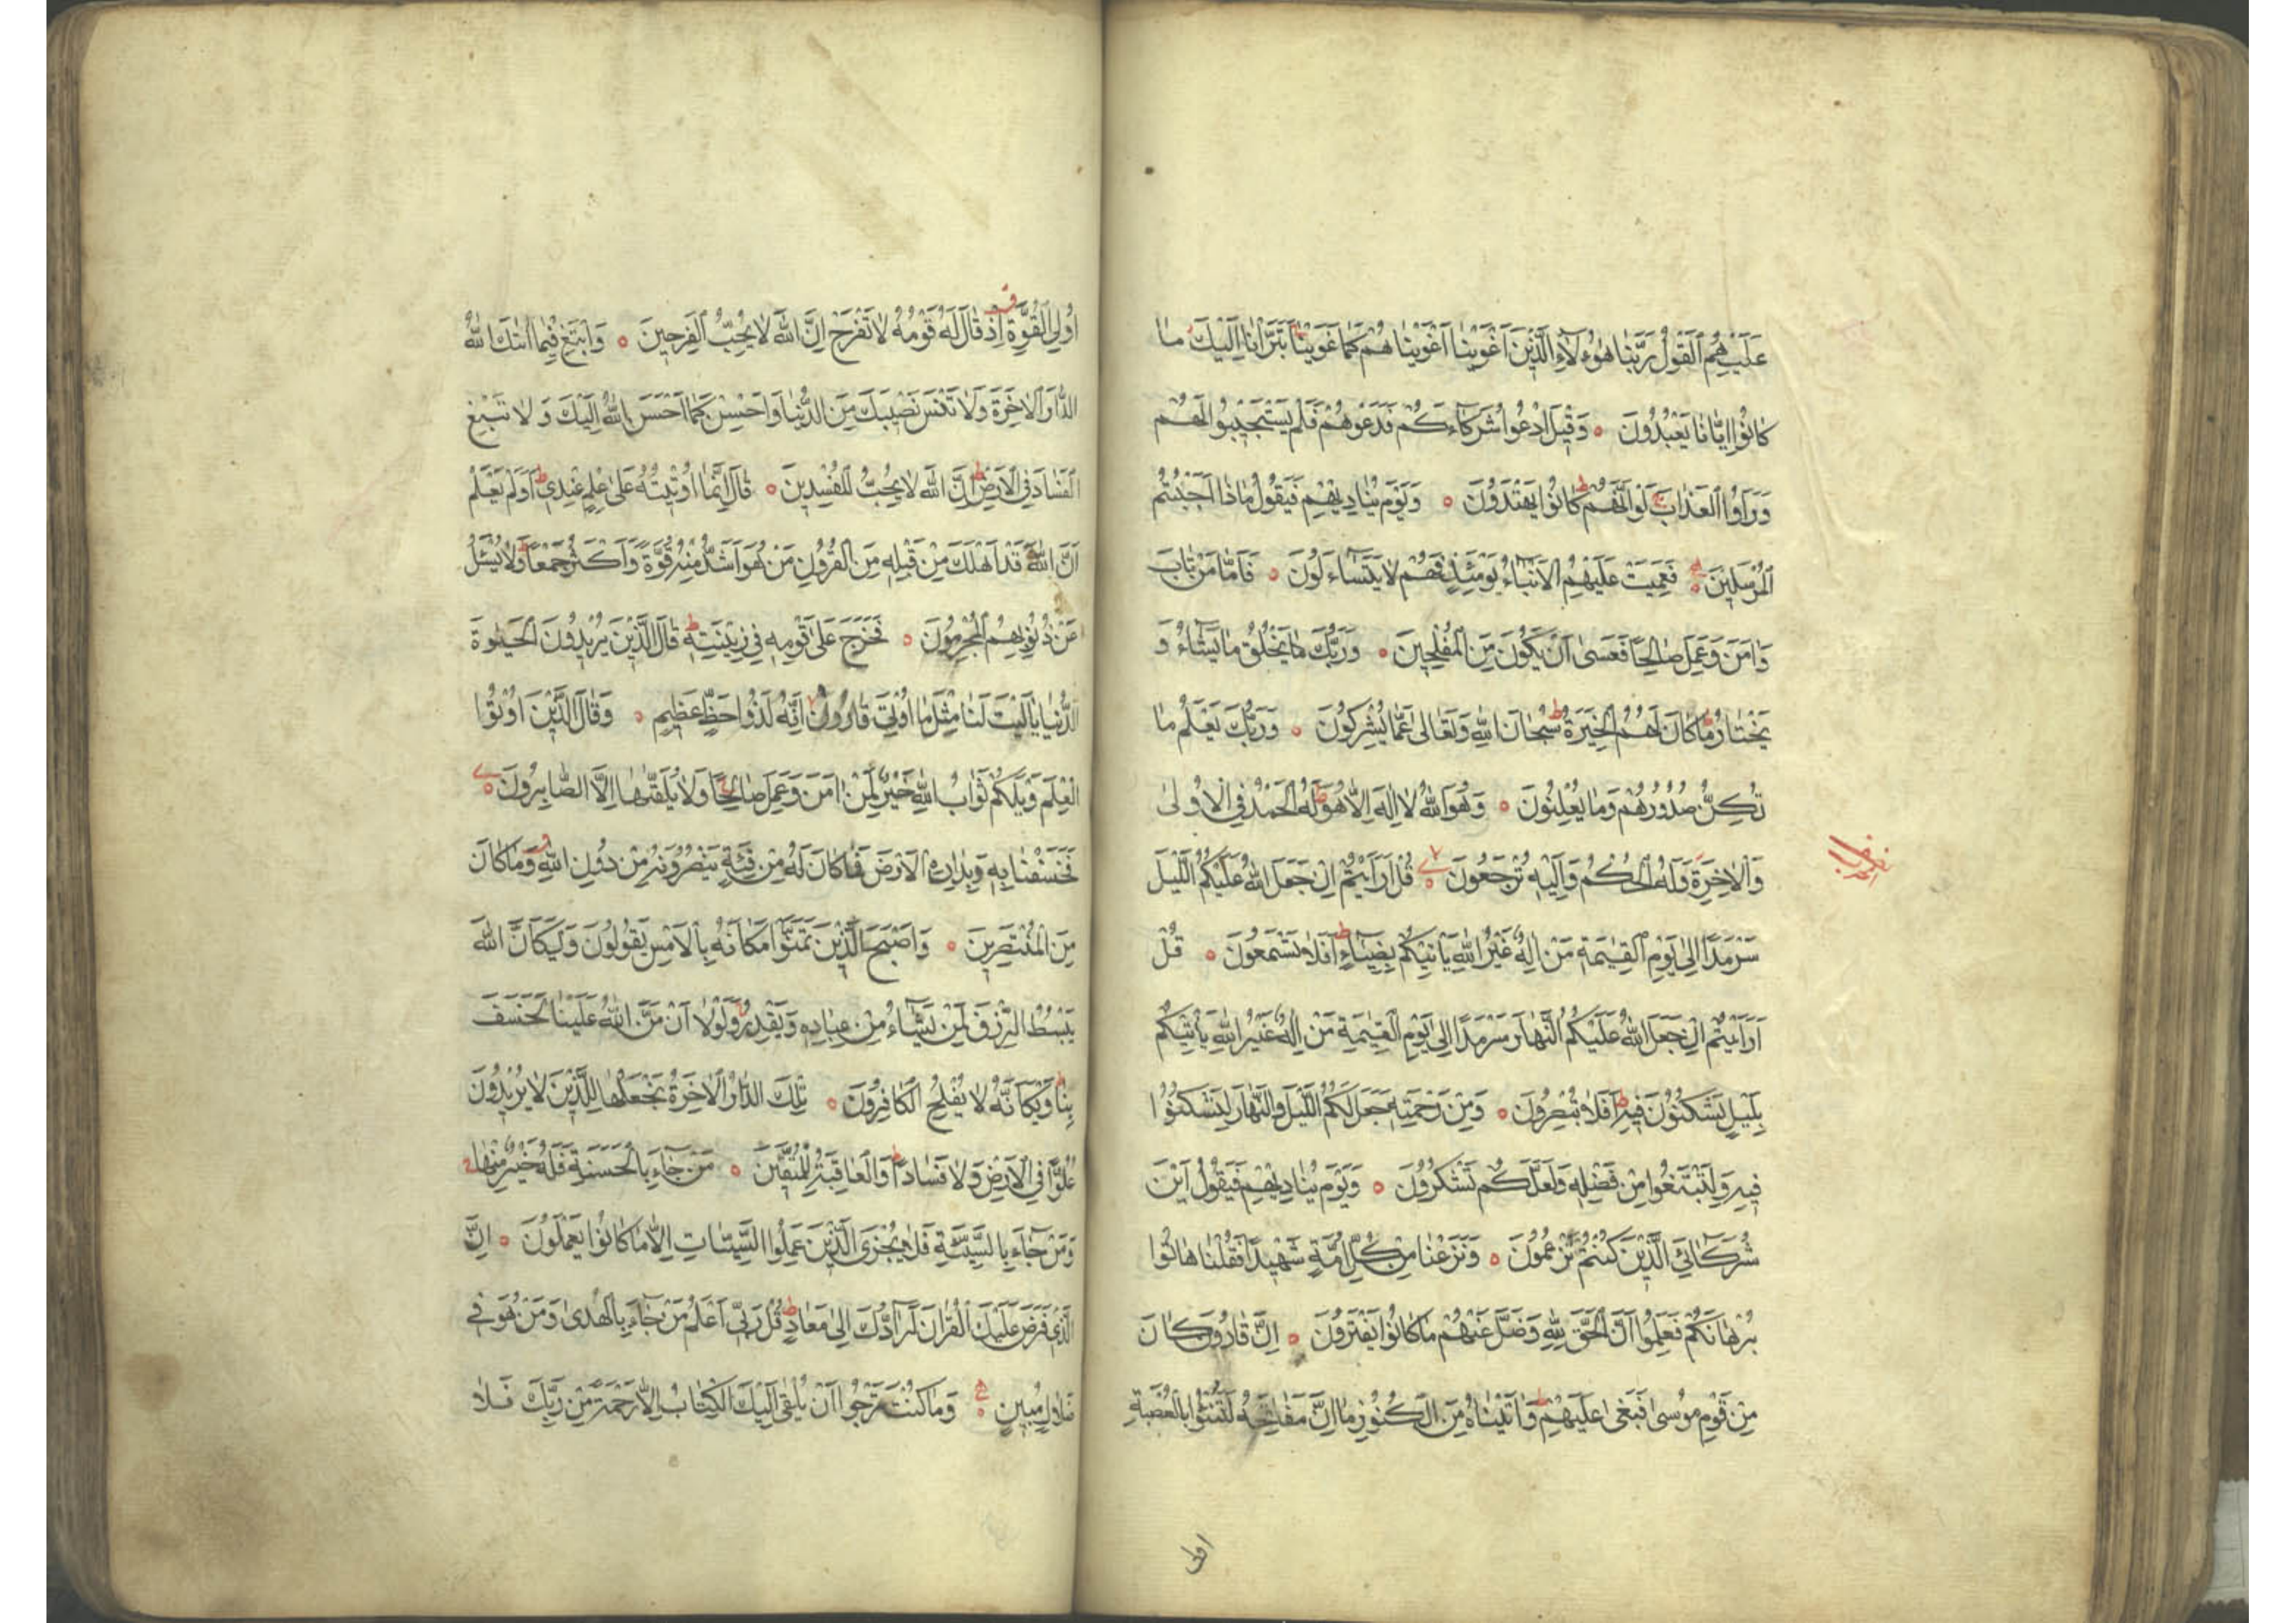 عَلَيْهِمُ الْقَوْلُ رَبَّنَا هٰؤُلَاءِ الَّذِينَ اَغْوَيْنَا اَغْوَيْنَاهُمْ كَمَا غَوَيْنَا تَبَرَّأْنَا اِلَيْكَ مَا
كَانُوا اِيَّانَا يَعْبُدُونَ وَقِيلَ ادْعُوا شُرَكَاءَكُمْ فَدَعَوْهُمْ فَلَمْ يَسْتَجِيبُوا لَهُمْ
وَرَاَوُا الْعَذَابَ لَوْ اَنَّهُمْ كَانُوا يَهْتَدُونَ وَيَوْمَ يُنَادِيهِمْ فَيَقُولُ مَاذَا اَجَبْتُمُ
الْمُرْسَلِينَ فَعَمِيَتْ عَلَيْهِمُ الْاَنْبَاءُ يَوْمَئِذٍ فَهُمْ لَا يَتَسَاءَلُونَ فَاَمَّا مَنْ تَابَ
وَاٰمَنَ وَعَمِلَ صَالِحًا فَعَسٰى اَنْ يَكُونَ مِنَ الْمُفْلِحِينَ وَرَبُّكَ مَا يَخْلُقُ مَا يَشَاءُ وَ
يَخْتَارُ مَا كَانَ لَهُمُ الْخِيَرَةُ سُبْحَانَ اللهِ وَتَعَالٰى عَمَّا يُشْرِكُونَ وَرَبُّكَ يَعْلَمُ مَا
تُكِنُّ صُدُورُهُمْ وَمَا يُعْلِنُونَ وَهُوَ اللهُ لَا اِلٰهَ اِلَّا هُوَ لَهُ الْحَمْدُ فِي الْاُولٰى
وَالْاٰخِرَةِ وَلَهُ الْحُكْمُ وَاِلَيْهِ تُرْجَعُونَ قُلْ اَرَاَيْتُمْ اِنْ جَعَلَ اللهُ عَلَيْكُمُ الَّيْلَ
سَرْمَدًا اِلٰى يَوْمِ الْقِيٰمَةِ مَنْ اِلٰهٌ غَيْرُ اللهِ يَأْتِيكُمْ بِضِيَاءٍ اَفَلَا تَسْمَعُونَ قُلْ
اَرَاَيْتُمْ اِنْ جَعَلَ اللهُ عَلَيْكُمُ النَّهَارَ سَرْمَدًا اِلٰى يَوْمِ الْقِيٰمَةِ مَنْ اِلٰهٌ غَيْرُ اللهِ يَأْتِيكُمْ
بِلَيْلٍ تَسْكُنُونَ فِيهِ اَفَلَا تُبْصِرُونَ وَمِنْ رَحْمَتِهِ جَعَلَ لَكُمُ الَّيْلَ وَالنَّهَارَ لِتَسْكُنُوا
فِيهِ وَلِتَبْتَغُوا مِنْ فَضْلِهِ وَلَعَلَّكُمْ تَشْكُرُونَ وَيَوْمَ يُنَادِيهِمْ فَيَقُولُ اَيْنَ
شُرَكَائِيَ الَّذِينَ كُنْتُمْ تَزْعُمُونَ وَنَزَعْنَا مِنْ كُلِّ اُمَّةٍ شَهِيدًا فَقُلْنَا هَاتُوا
بُرْهَانَكُمْ فَعَلِمُوا اَنَّ الْحَقَّ لِلّٰهِ وَضَلَّ عَنْهُمْ مَا كَانُوا يَفْتَرُونَ اِنَّ قَارُونَ كَانَ
مِنْ قَوْمِ مُوسٰى فَبَغٰى عَلَيْهِمْ وَاٰتَيْنَاهُ مِنَ الْكُنُوزِ مَا اِنَّ مَفَاتِحَهُ لَتَنُوْٓءُا بِالْعُصْبَةِ
اولى
اُولِي الْقُوَّةِ اِذْ قَالَ لَهُ قَوْمُهُ لَا تَفْرَحْ اِنَّ اللهَ لَا يُحِبُّ الْفَرِحِينَ وَابْتَغِ فِيمَا اٰتٰىكَ اللهُ
الدَّارَ الْاٰخِرَةَ وَلَا تَنْسَ نَصِيبَكَ مِنَ الدُّنْيَا وَاَحْسِنْ كَمَا اَحْسَنَ اللهُ اِلَيْكَ وَلَا تَبْغِ
الْفَسَادَ فِي الْاَرْضِ اِنَّ اللهَ لَا يُحِبُّ الْمُفْسِدِينَ قَالَ اِنَّمَا اُوتِيتُهُ عَلٰى عِلْمٍ عِنْدِي اَوَلَمْ يَعْلَمْ
اَنَّ اللهَ قَدْ اَهْلَكَ مِنْ قَبْلِهِ مِنَ الْقُرُونِ مَنْ هُوَ اَشَدُّ مِنْهُ قُوَّةً وَاَكْثَرُ جَمْعًا وَلَا يُسْئَلُ
عَنْ ذُنُوبِهِمُ الْمُجْرِمُونَ فَخَرَجَ عَلٰى قَوْمِهِ فِي زِينَتِهِ قَالَ الَّذِينَ يُرِيدُونَ الْحَيٰوةَ
الدُّنْيَا يَا لَيْتَ لَنَا مِثْلَ مَا اُوتِيَ قَارُونُ اِنَّهُ لَذُو حَظٍّ عَظِيمٍ وَقَالَ الَّذِينَ اُوتُوا
الْعِلْمَ وَيْلَكُمْ ثَوَابُ اللهِ خَيْرٌ لِمَنْ اٰمَنَ وَعَمِلَ صَالِحًا وَلَا يُلَقّٰىهَا اِلَّا الصَّابِرُونَ
فَخَسَفْنَا بِهِ وَبِدَارِهِ الْاَرْضَ فَمَا كَانَ لَهُ مِنْ فِئَةٍ يَنْصُرُونَهُ مِنْ دُونِ اللهِ وَمَا كَانَ
مِنَ الْمُنْتَصِرِينَ وَاَصْبَحَ الَّذِينَ تَمَنَّوْا مَكَانَهُ بِالْاَمْسِ يَقُولُونَ وَيْكَاَنَّ اللهَ
يَبْسُطُ الرِّزْقَ لِمَنْ يَشَاءُ مِنْ عِبَادِهِ وَيَقْدِرُ وَلَوْلَا اَنْ مَنَّ اللهُ عَلَيْنَا لَخَسَفَ
بِنَا وَيْكَاَنَّهُ لَا يُفْلِحُ الْكَافِرُونَ تِلْكَ الدَّارُ الْاٰخِرَةُ نَجْعَلُهَا لِلَّذِينَ لَا يُرِيدُونَ
عُلُوًّا فِي الْاَرْضِ وَلَا فَسَادًا وَالْعَاقِبَةُ لِلْمُتَّقِينَ مَنْ جَاءَ بِالْحَسَنَةِ فَلَهُ خَيْرٌ مِنْهَا
وَمَنْ جَاءَ بِالسَّيِّئَةِ فَلَا يُجْزَى الَّذِينَ عَمِلُوا السَّيِّئَاتِ اِلَّا مَا كَانُوا يَعْمَلُونَ اِنَّ
الَّذِي فَرَضَ عَلَيْكَ الْقُرْاٰنَ لَرَادُّكَ اِلٰى مَعَادٍ قُلْ رَبِّي اَعْلَمُ مَنْ جَاءَ بِالْهُدٰى وَمَنْ هُوَ فِي
ضَلَالٍ مُبِينٍ وَمَا كُنْتَ تَرْجُوا اَنْ يُلْقٰى اِلَيْكَ الْكِتَابُ اِلَّا رَحْمَةً مِنْ رَبِّكَ فَلَا